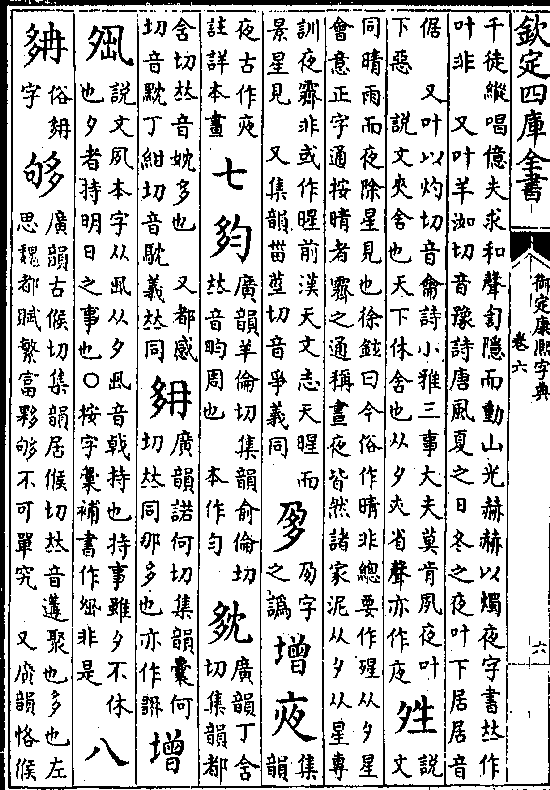 欽定四庫全書
御定康熙字典
卷六
六
千徒縱唱億夫求和聲訇隱而動山光赫赫以燭夜字書𠀤作
叶非 又叶羊洳切音豫詩唐風夏之日冬之夜叶下居居音
倨 又叶以灼切音龠詩小雅三事大夫莫肯夙夜叶
下惡 說文夾舍也天下休舍也从夕亦省聲亦作亱
夝
說
文
同晴雨而夜除星見也徐鉉曰今俗作晴非總要作从夕星
會意正字通按晴者霽之通稱晝夜皆然諸家泥从夕从星專
訓夜霽非或作暒前漢天文志天暒而
景星見 又集韻葘莖切音爭義同
夃字
之譌
增
集
韻
夜古作
註詳本畫
七
廣韻羊倫切集韻俞倫切
𠀤音昀周也 本作勻
廣韻丁含
切集韻都
含切𠀤音妉多也 又都感
切音黕丁紺切音馾義𠀤同
廣韻諾何切集韻囊何
切𠀤同那多也亦作
增
𡖊
說文夙本字从丮从夕丮音戟持也持事雖夕不休
也夕者持明日之事也○按字彙補書作非是
八
俗
字
够
廣韻古候切集韻居候切𠀤音遘聚也多也左
思魏都賦繁富夥够不可單究 又廣韻恪候